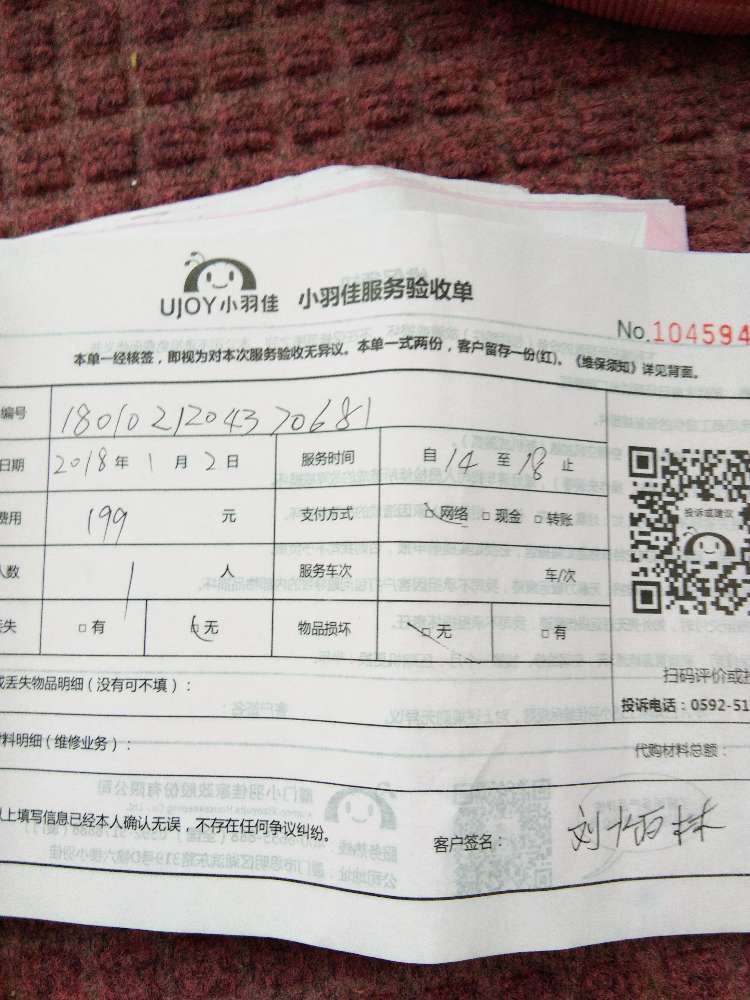 UJOY小羽佳 小羽佳服务验收单
No.104594
本单一经核签，即视为对本次服务验收无异议。本单一式两份，客户留存一份(红)。《维保须知》详见背面。
编号 180102120437068 1
日期 2018年1月2日 服务时间 自14至18止
费用 199 元 支付方式 □网络 □现金 □转账
投诉或建议
人数 1 人 服务车次 车/次
失 □有 □无 物品损坏 □无 □有
或丢失物品明细(没有可不填)：
扫码评价或
投诉电话：0592-51
料明细(维修业务)：
代购材料总额：
上填写信息已经本人确认无误，不存在任何争议纠纷。
客户签名：